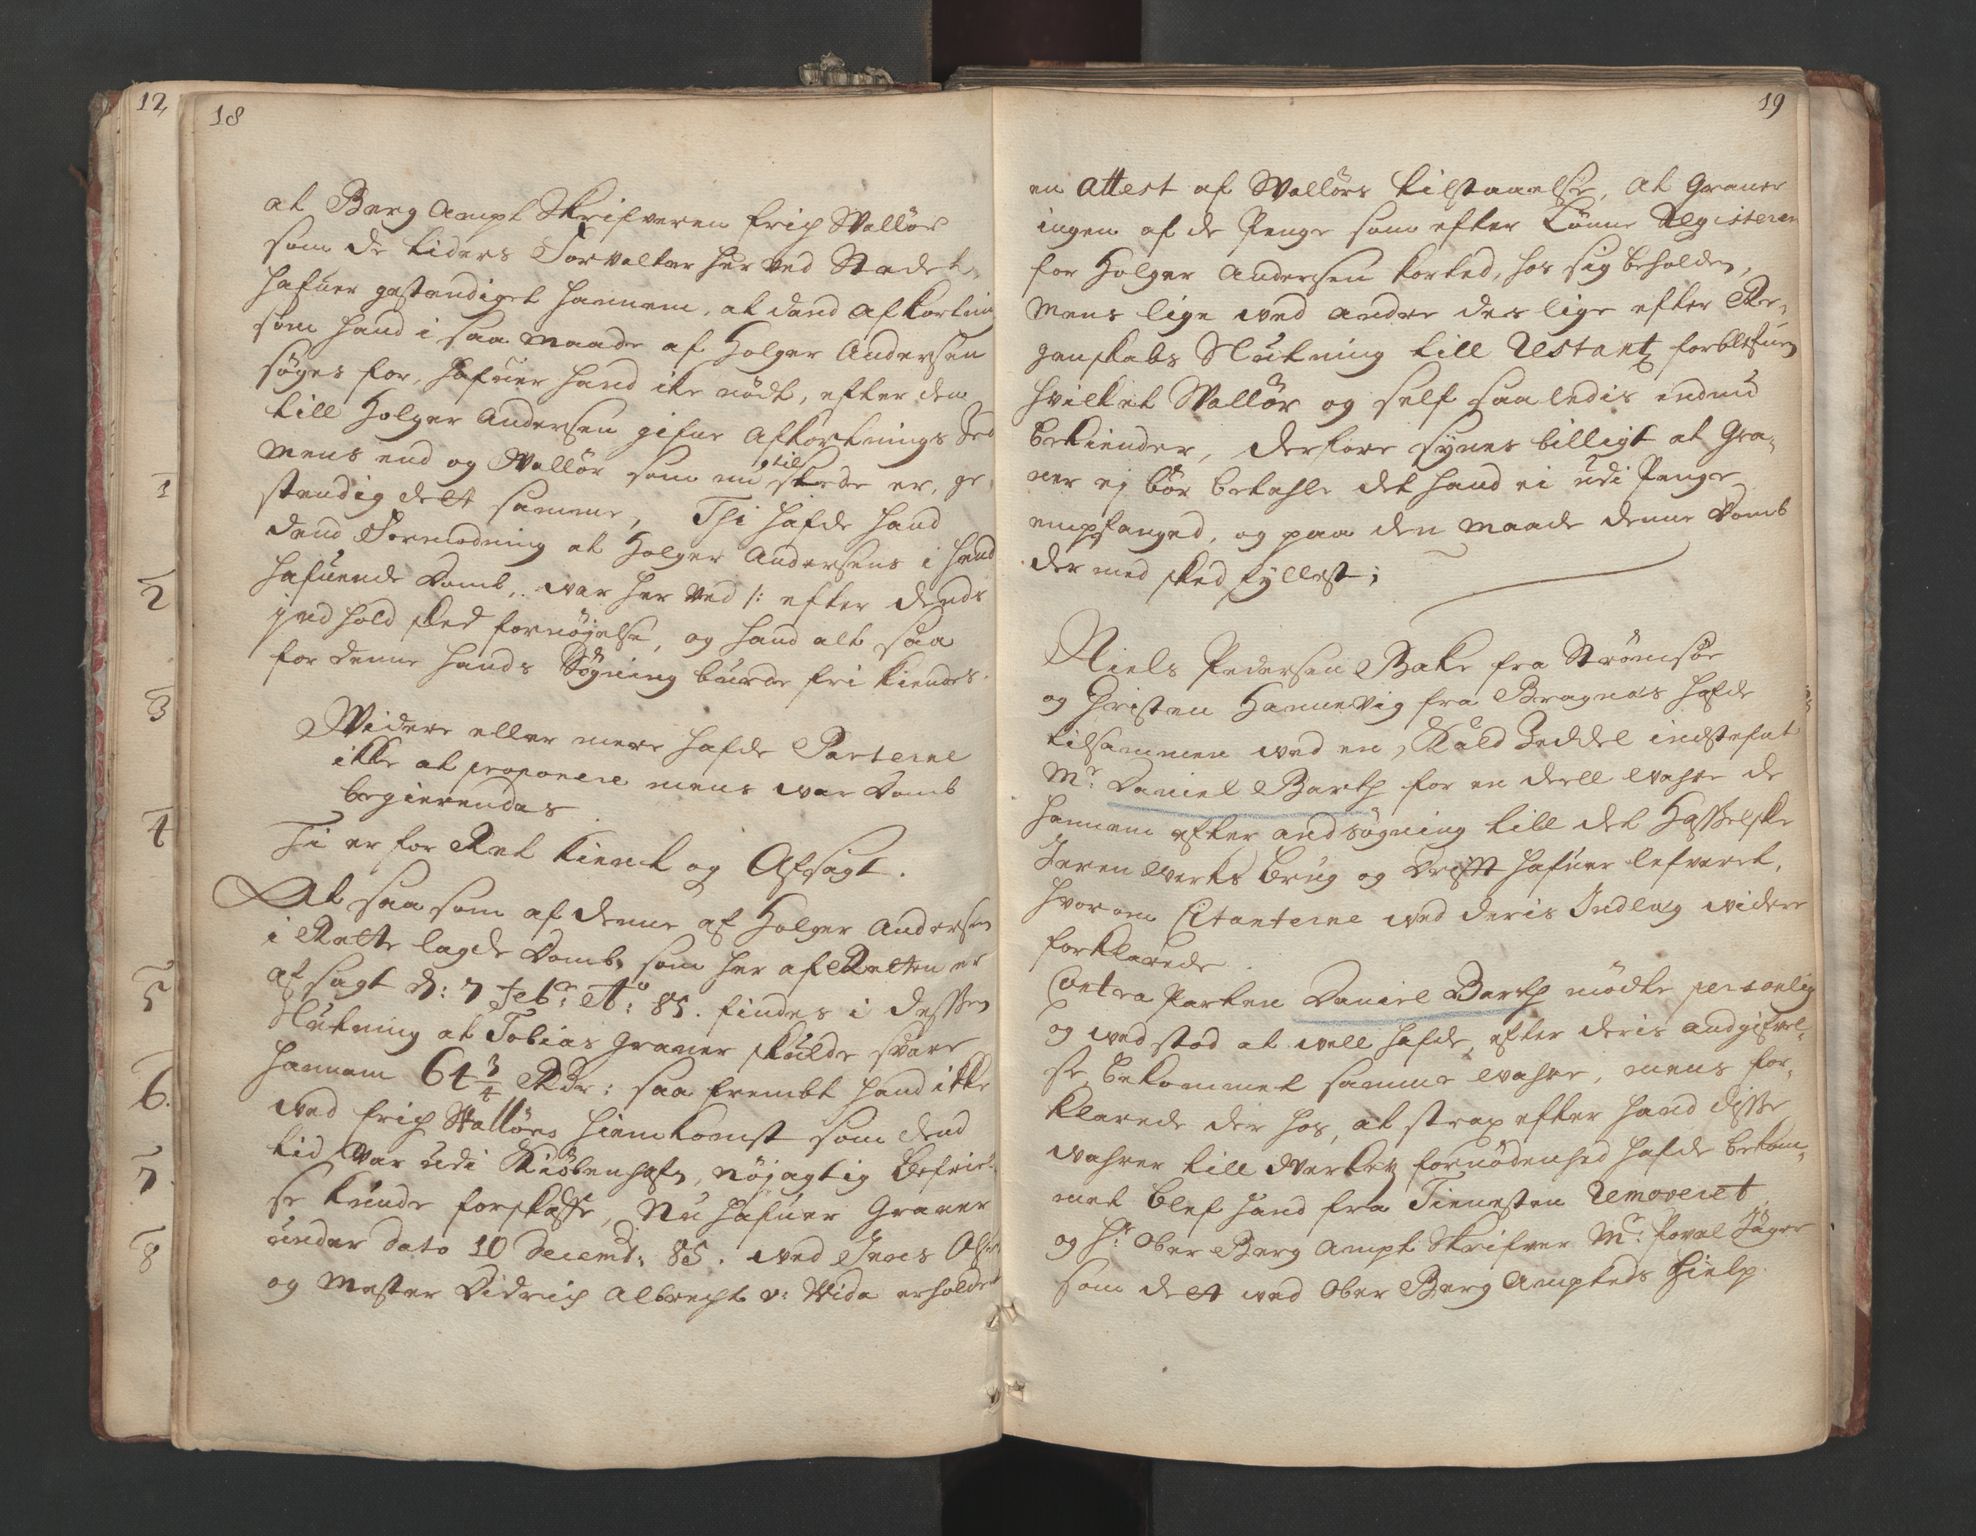 12
18
at Berg Ampt Skrifveren Erich Wallør
som de tiders Forvalter her ved Stedet
hafuer gestendiget hannem, at dend Afkortning
som hand i saa maade af Holger Andersen
søges for, hafuer hand ike nødt, efter den
till Holger Andersen gifne Afkortnings Sed
mens end og Wallør som nu til stede er, ge,
stendig dett samme, Thi hafde hand
dend Formodning at Holger Andersens i hend
hafuende Domb, war her ved /: efter dends
indhold sked fornøjelse, og hand alt saa
for denne hands Søgning burde fri kiendes.
Widere eller mere hafde Parterne
ikke at proponere mens war Domb
begierendes
Ti er for Ret kient og Afsagt.
At saa som af denne af Holger Andersen
i Rette lagde Domb, som her af Retten er
af sagt d: 7 Febr: Ao: 85. findes i dessen
Slutning at Tobias Graner skulde svare
hannem 64 3/4 Rdr: saa frembt hand ikke
ved Erich Wallørs hiemkomst som dend
tid war udi Kiøbenhafn, nøjagtig befriel-
se kunde forskaffe, Nu hafuer Graner
under dato 10 Decembr: 85. ved Jens
og Mester Didrich Albrecht v: Wida erholdet
1
2
3
4
5
6.
7.
8
19
en Attest af Wallørs tilstaaelse, At Graner
ingen af de Penge som efter Lønne Registeren
for Holger Andersen korted, hos sig beholden,
mens lige ved andre des lige efter Re-
genskabs Slutning till Restantz forblefuen
hvilket Wallør og self saaledis endnu
bekiender, derfore synes billigt at Gra-
ner ej bør betahle det hand ei udi Penge
empfanged, og paa den maade denne Domb
der med sked fyllest;
Niels Pedersen Bake fra Strømsøe
og Christen Hannevig fra Bragnæs hafde
tilsammen ved en Kald Zeddel indstefnt
Mr. Daniel Barth for en deell wahre de
hannem efter andsøgning till det Hasselske
Jeren Werks brug og Drifft hafuer lefveret,
hvorom Citanterne ved deris Indleg widere
forklarede
Contra Parten Daniel Barth mødte personlig
og ved stod at well hafde, efter deris andgifvel-
se bekommet samme wahre, mens for-
klarede der hos, at strax efter hand disse
wahrer till Werketz fornødenhed hafde bekom-
met blef hand fra Tienesten Removeret,
og hr. Ober Berg Ampt Skrifver Mr. Povel Jåger
som dett ved Ober Berg Ampteds hielp